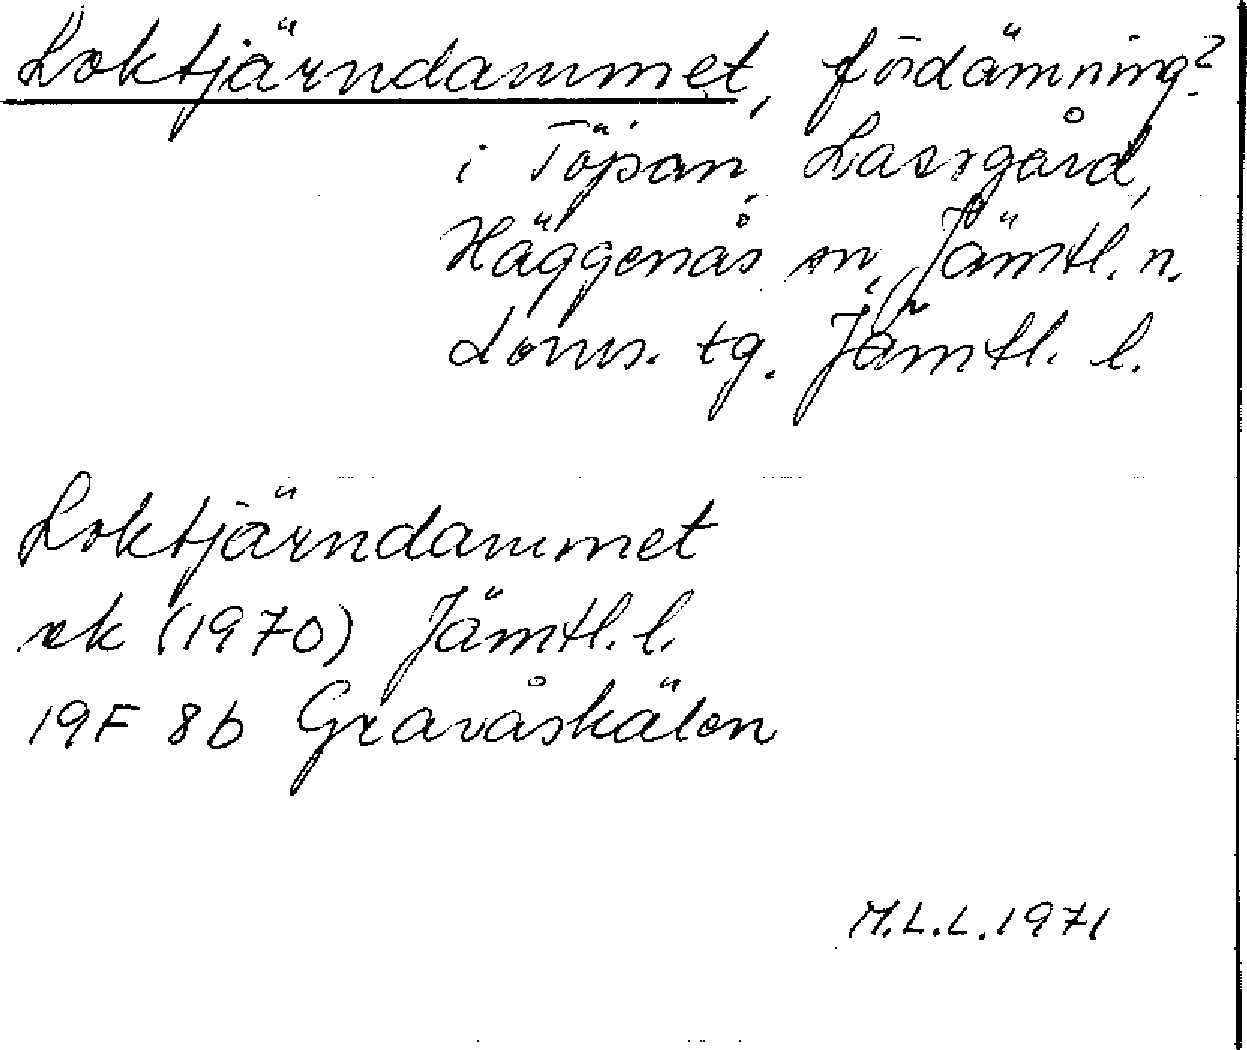 Loktjärndammet, fördämning?
i Töpan, Lassgård,
Häggenås sn, Jämtl. n.
doms. tg. Jämtl. l.
Loktjärndammet
ek (1970) Jämtl. l.
19F 8b Gravåskälen
M.L.L. 1971